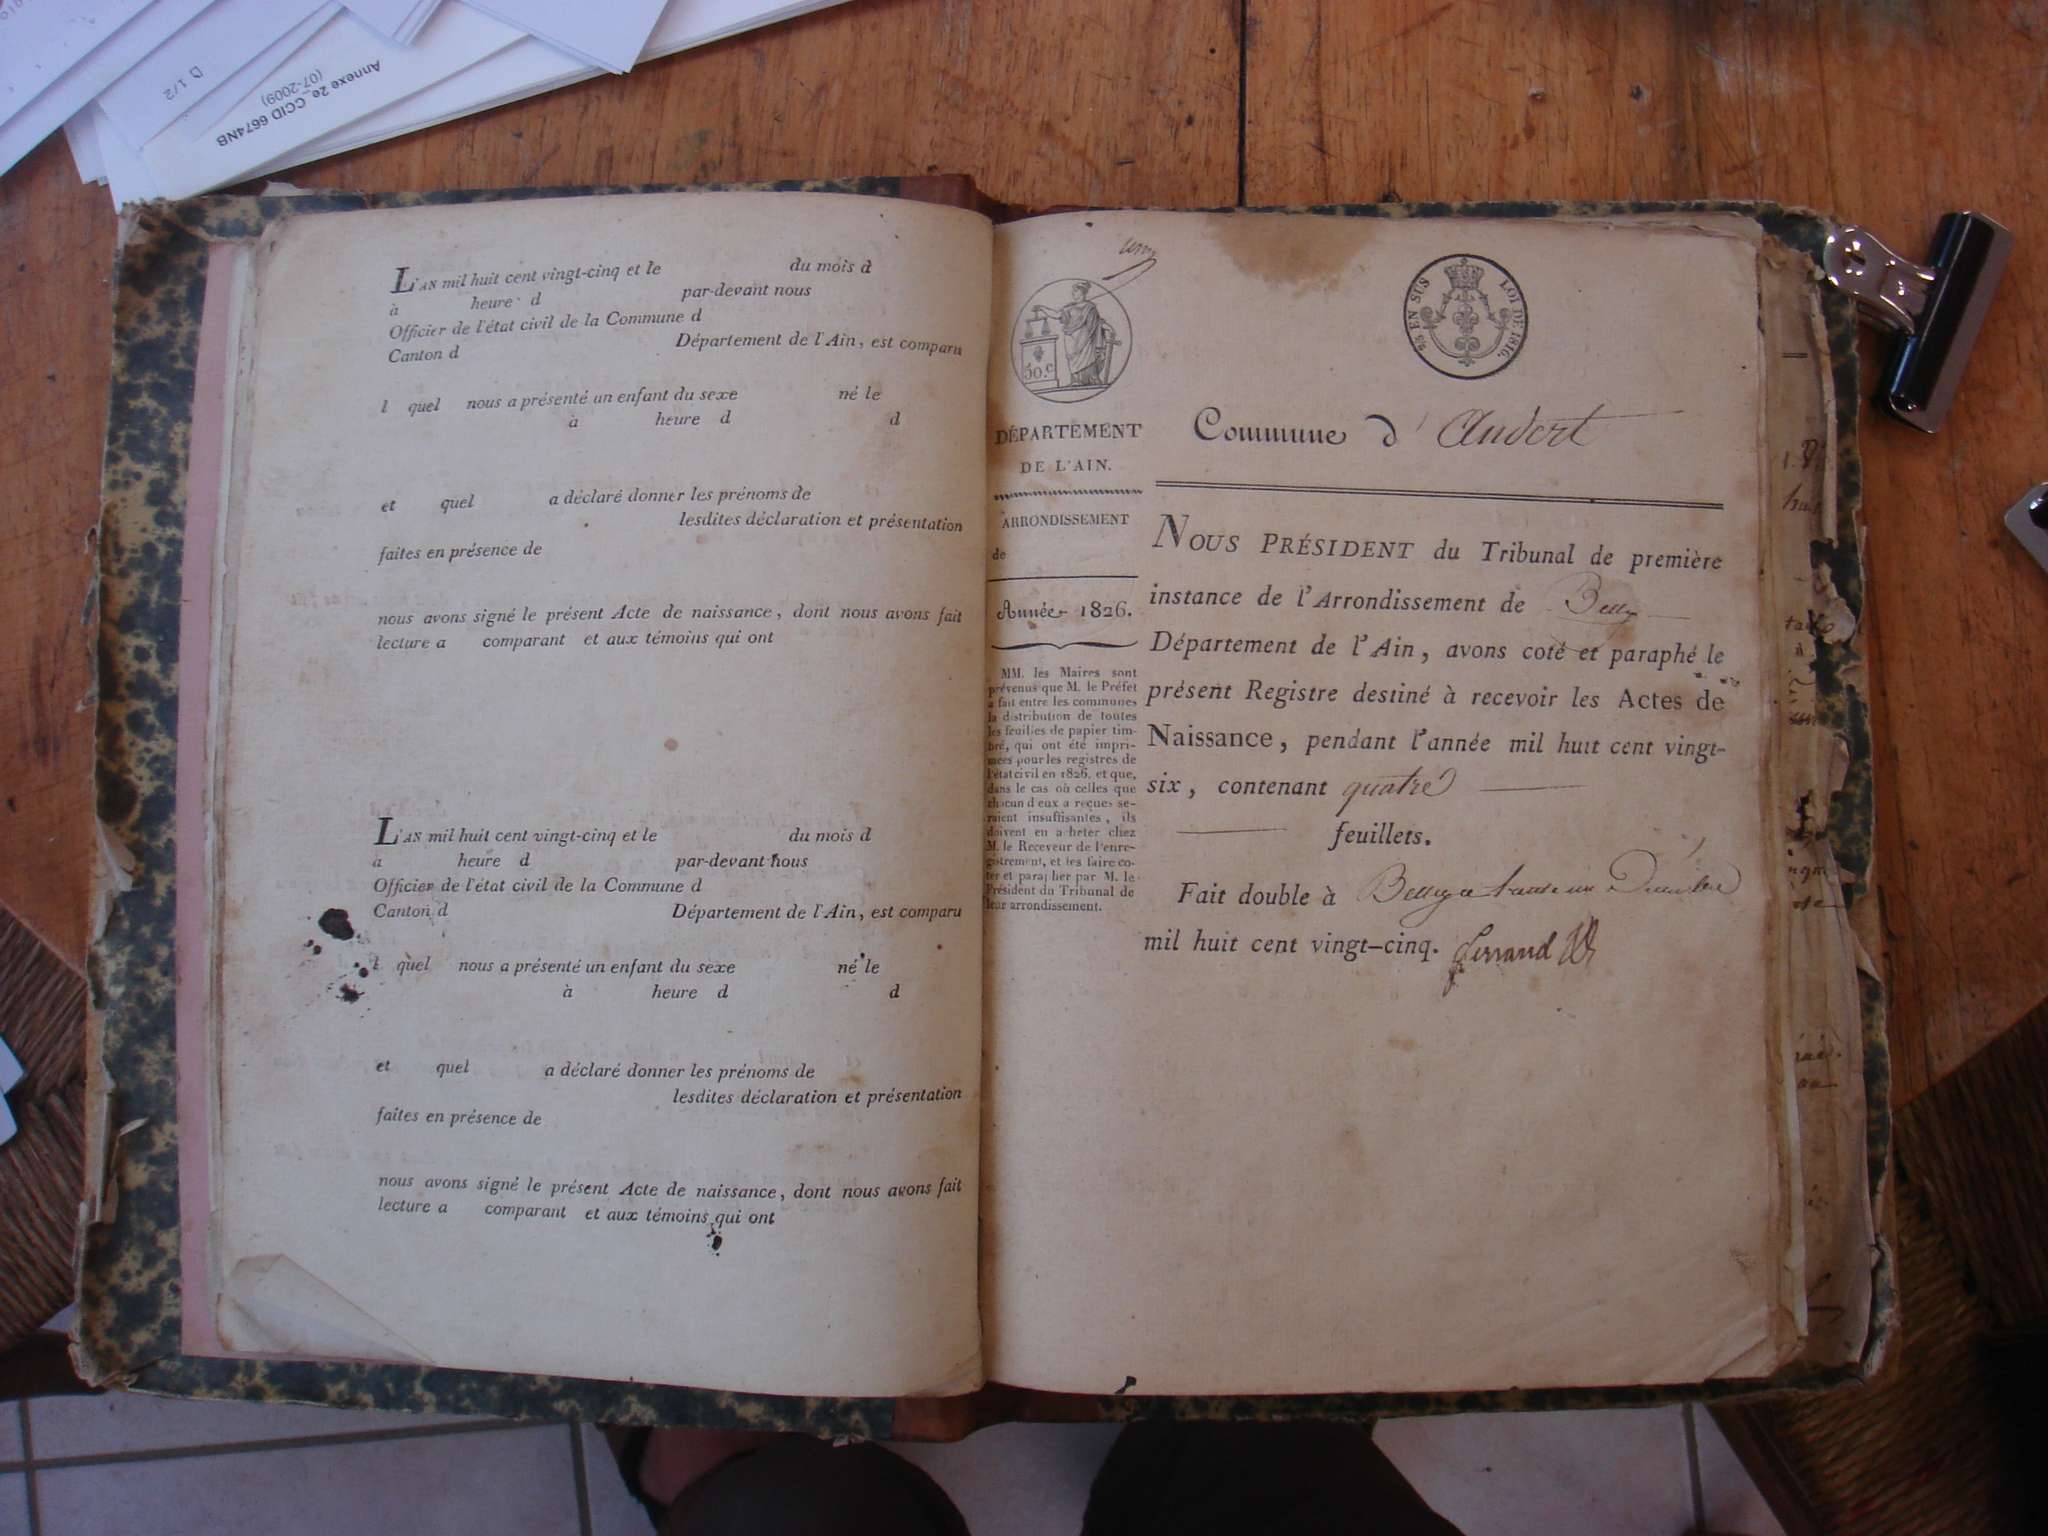 Annexe 2e_CCID 6674NB
(07-2009)
1/2
L'AN mil huit cent vingt-cinq et le du mois d
à heure d par-devant nous
Officier de l'état civil de la Commune d
Canton d Département de l'Ain, est comparu
l quel nous a présenté un enfant du sexe né le
à heure d d
et quel a déclaré donner les prénoms de
lesdites déclaration et présentation
faites en présence de
nous avons signé le présent Acte de naissance, dont nous avons fait
lecture a comparant et aux témoins qui ont
L'AN mil huit cent vingt-cinq et le du mois d
à heure d par-devant nous
Officier de l'état civil de la Commune d
Canton d Département de l'Ain, est comparu
l quel nous a présenté un enfant du sexe né le
à heure d d
et quel a déclaré donner les prénoms de
lesdites déclaration et présentation
faites en présence de
nous avons signé le présent Acte de naissance, dont nous avons fait
lecture a comparant et aux témoins qui ont
50.c
EN SUS LOI DE 1816.
DÉPARTEMENT
DE L'AIN.
ARRONDISSEMENT
de
Année 1826.
MM. les Maires sont
prévenus que M. le Préfet
a fait entre les communes
la distribution de toutes
les feuilles de papier tim-
bré, qui ont été impri-
mées pour les registres de
l'état civil en 1826, et que,
dans le cas où celles que
chacun d'eux a reçues se-
raient insuffisantes, ils
doivent en acheter chez
M. le Receveur de l'enre-
gistrement, et les faire co-
ter et parapher par M. le
Président du Tribunal de
leur arrondissement.
Commune d'Andert
NOUS PRÉSIDENT du Tribunal de première
instance de l'Arrondissement de Belley
Département de l'Ain, avons coté et paraphé le
présent Registre destiné à recevoir les Actes de
Naissance, pendant l'année mil huit cent vingt-
six, contenant quatre
feuillets.
Fait double à Belley le trente un Décembre
mil huit cent vingt-cinq. Ferrand